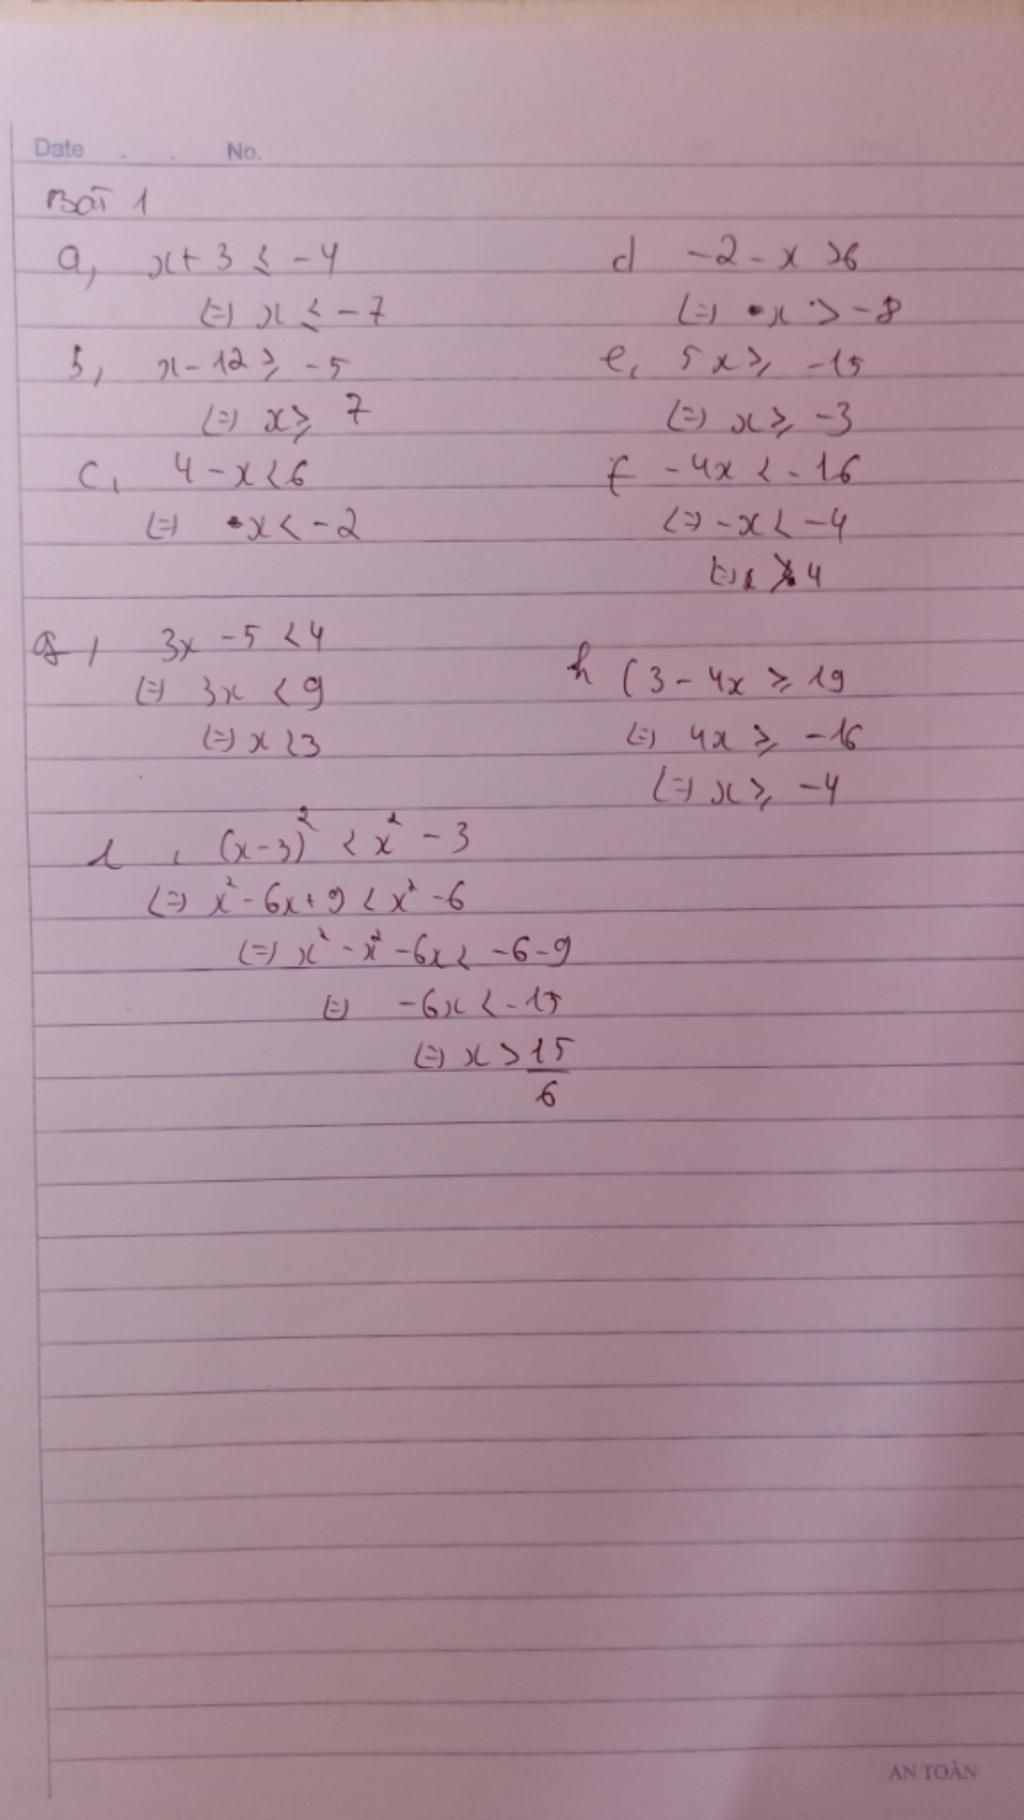 Date . . No.
Bài 1
a, x + 3 ≤ -4
(=) x ≤ -7
b, x - 12 ≥ -5
(=) x ≥ 7
c, 4 - x < 6
(=) x < -2
d -2 - x > 6
(=) x > -8
e, 5x ≥ -15
(=) x ≥ -3
f -4x < -16
(=) -x < -4
(=) x > 4
g, 3x - 5 < 4
(=) 3x < 9
(=) x < 3
h (3 - 4x ≥ 19
(=) 4x ≥ -16
(=) x ≥ -4
i, (x-3)² < x² - 3
(=) x² - 6x + 9 < x² - 6
(=) x² - x² - 6x < -6 - 9
(=) -6x < -15
(=) x > 15/6
AN TOÀN